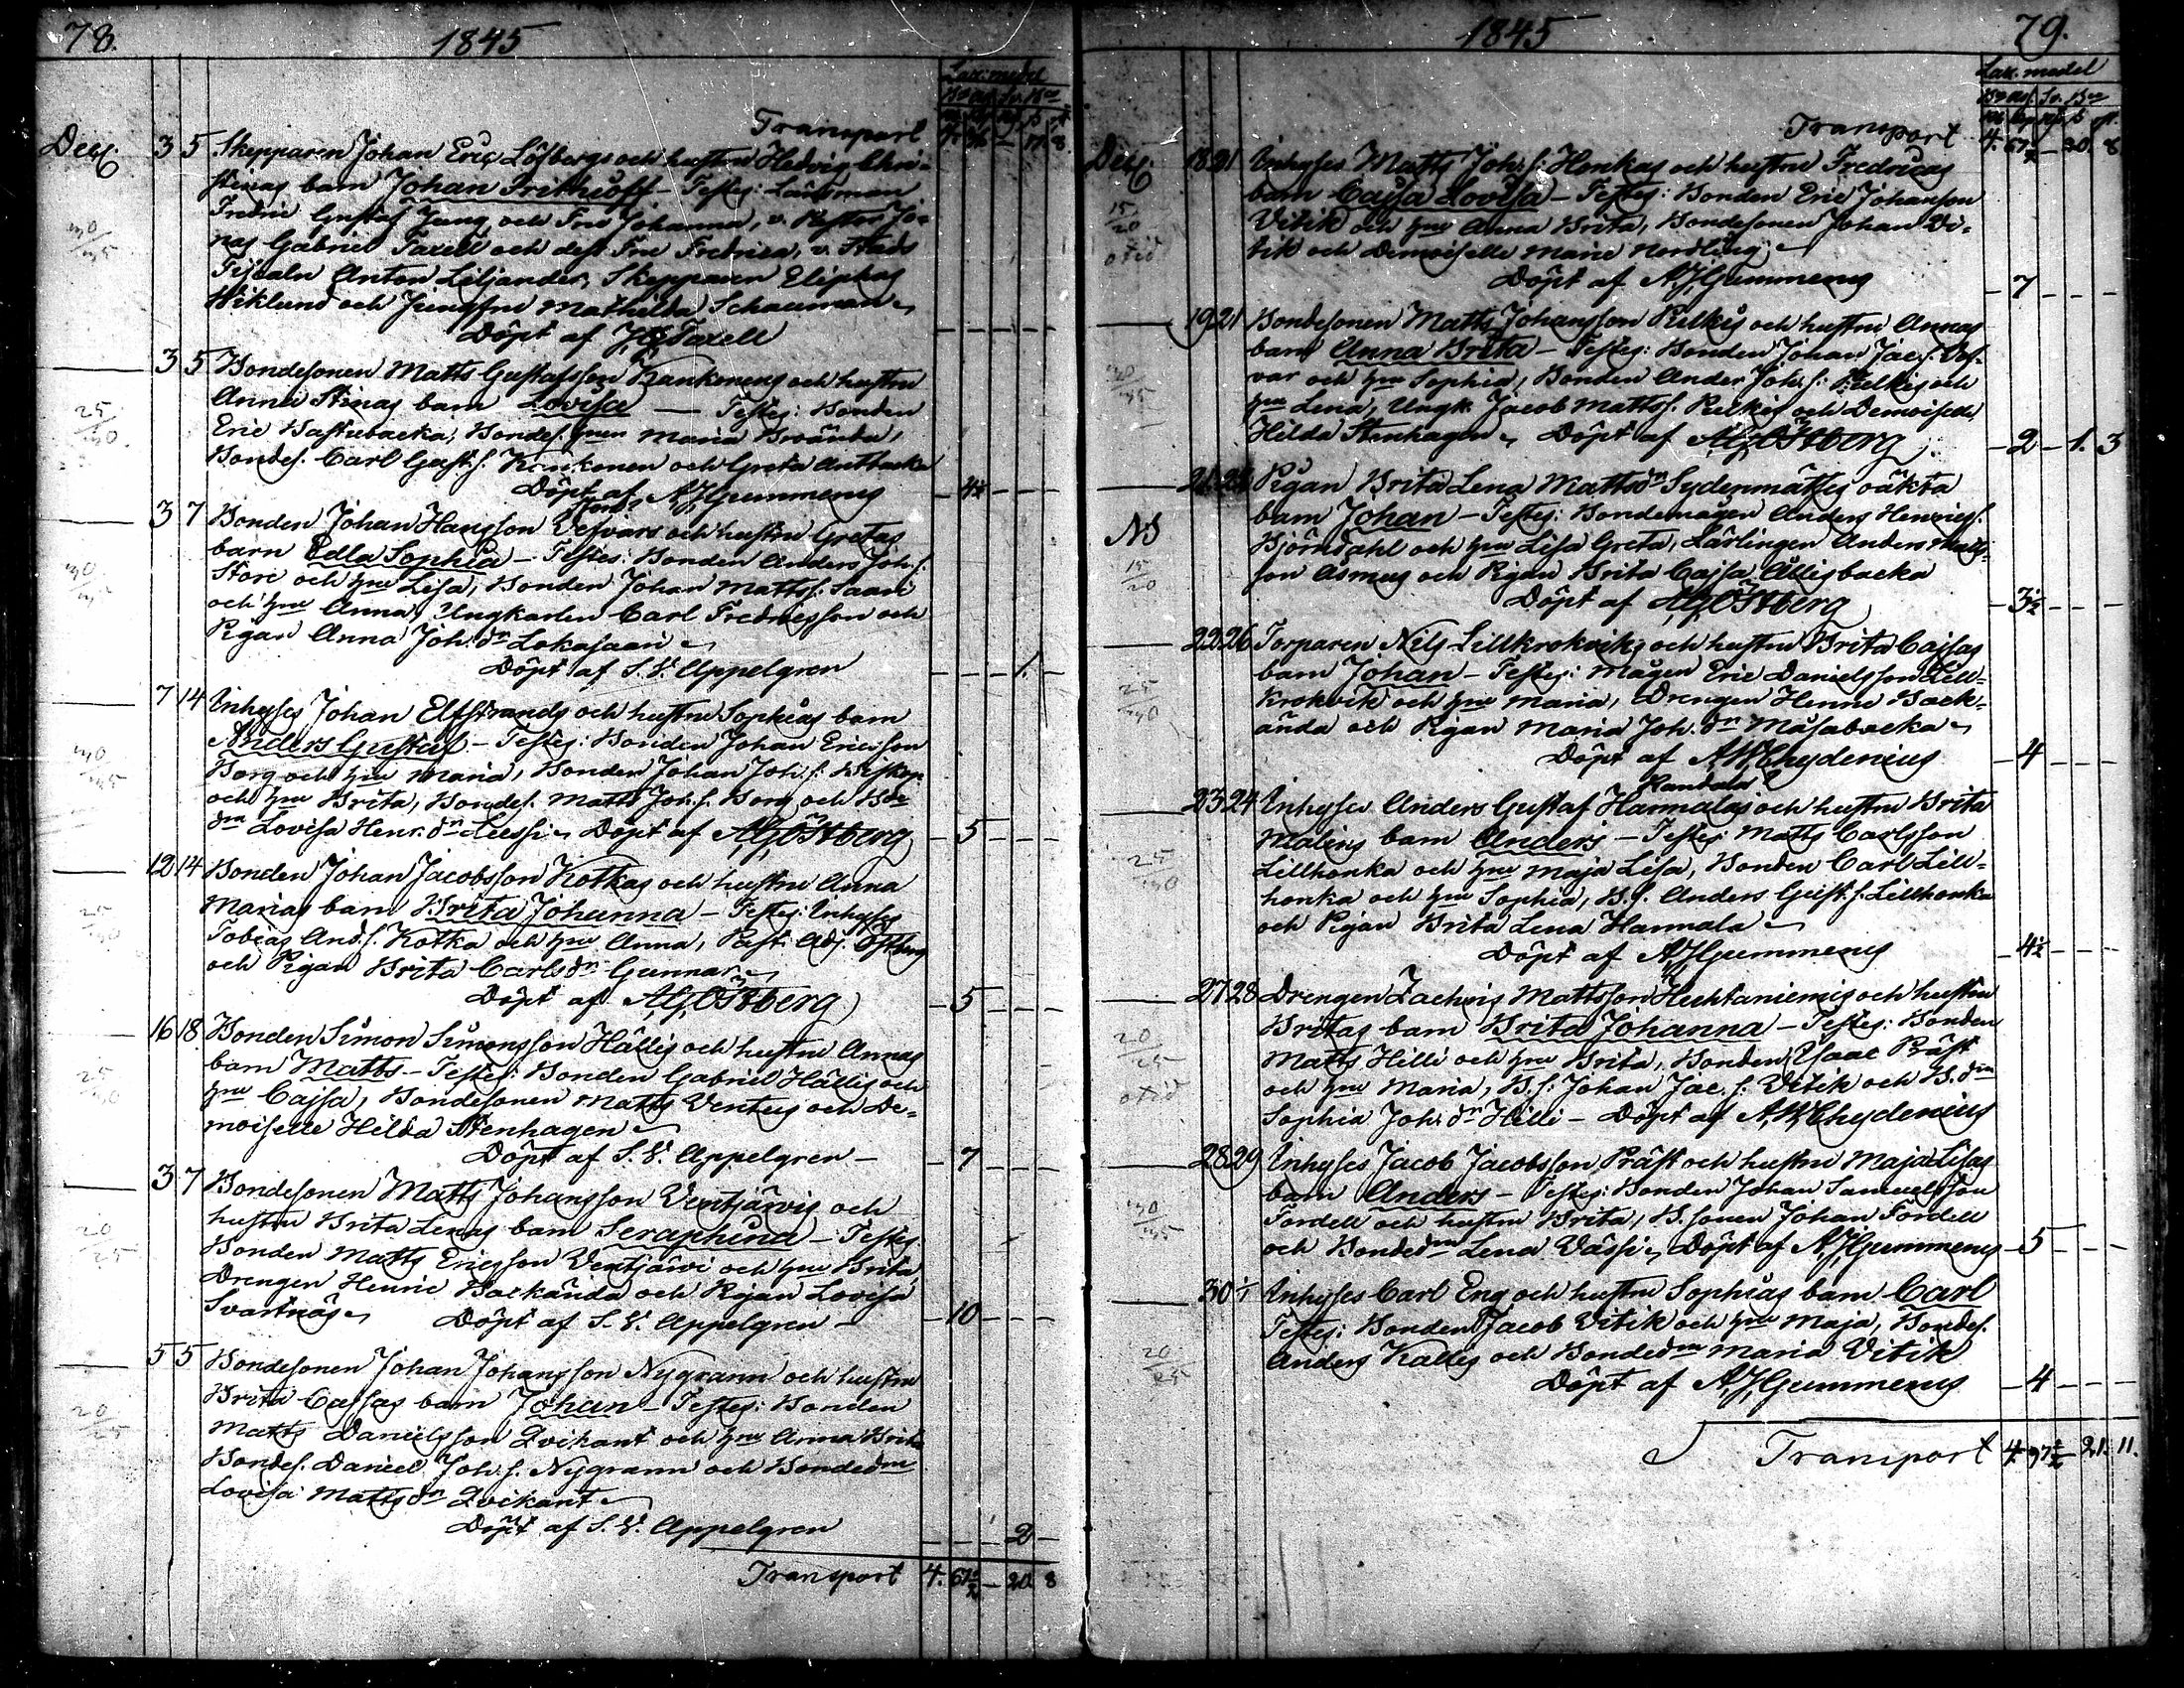 78.
1845
Lax. medel
Transport
Dec. 3 5 Skepparen Johan Eric Löfbergs och hustru Hedvig Chri-
stinas barn Johan Frithioff – Testes: Länsman
Fredric Gustaf Jung och Fru Johanna, v. Pastor Jo-
nas Gabriel Taxell och dess Fru Fredrica, v. Stads
30/35
Fiscaln Anton Liljander, Skepparen Eliphas
Wiklund och Jungfru Mathilda Schauman
Döpt af J.G. Taxell
3 5 Bondesonen Matts Gustafsson Kankonens och hustru
Anna Stinas barn Lovisa — Testes: Bonden
25/30
Eric Bastubacka, Bondes. hru Maria Brända,
Bondes. Carl Gust.s. Kankonen och Greta Anttbacka
Döpt af A.J. Gummerus 4½
3 7 Bonden Johan Hansson Vesvars och hustru Gretas
barn Edla Sophia – Testes: Bonden Anders Joh.s.
Store och hru Lisa, Bonden Johan Mattss. Saari
30/35
och hru Anna, Ungkarlen Carl Fredricsson och
Pigan Anna Joh.dr Lokasaari
Döpt af S.V. Appelgren 1.
7 14 Inhyses Johan Elfstrands och hustru Sophias barn
Anders Gustaf – Testes: Bonden Johan Ericsson
30/35
Borg och hru Maria, Bonden Johan Joh.s. Biskop
och hru Brita, Bondes. Matts Joh.s. Borg och Bde
dr Lovisa Henr.dr Leessi Döpt af A.G. Östberg 5
12 14 Bonden Johan Jacobsson Kotkas och hustru Anna
Marias barn Brita Johanna – Testes: Inhyses
25/30
Tobias And.s. Kotka och hru Anna, Past. Adj. Östberg
och Pigan Brita Carlsdr Gunnar
Döpt af A.G. Östberg 5
16 18 Bonden Simon Simonsson Hällis och hustru Annas
barn Matts – Testes: Bonden Gabriel Hällis och
25/30
hru Cajsa, Bondesonen Matts Ventus och De-
moiselle Hilda Stenhagen
Döpt af S.V. Appelgren – 7
3 7 Bondesonen Matts Johansson Ventjärvis och
hustru Brita Lenas barn Seraphina – Testes:
20/25
Bonden Matts Ericsson Ventjärvi och hru Brita,
Drengen Henric Backända och Pigan Lovisa
Svartnäs Döpt af S.V. Appelgren – 10
5 5 Bondesonen Johan Johansson Nygrann och hustru
Brita Cajsas barn Johan – Testes: Bonden
20/25
Matts Danielsson Qvikant och hru Anna Brita
Bondes. Daniel Joh.s. Nygrann och Bondedr
Lovisa Mattsdr Qvikant
Döpt af S.V. Appelgren 2
Transport 4. 67½ – 20. 8
1845
79.
Lax. medel
Transport 4. 67½ – 20. 8
Dec. 18 21 Inhyses Matts Joh.s. Honkas och hustru Fredricas
barn Cajsa Lovisa – Testes: Bonden Eric Johanson
15/20
Vitik och hru Anna Brita, Bondesonen Johan Vi-
otid
tik och Demoiselle Marie Nordling
Döpt af A.J. Gummerus 7
19 21 Bondesonen Matts Johansson Pulkis och hustru Annas
barn Anna Brita – Testes: Bonden Johan Jac.s. Ves-
30/35
var och hru Sophia, Bonden Ander Joh.s. Pulkis och
hru Lena, Ungk. Jacob Mattss. Pulkis och Demoiselle
Hilda Stenhagen Döpt af A.G. Östberg 2 – 1. 3
Pigan Brita Lena Mattsdr Sydenmättes oäkta
barn Johan – Testes: Bondemågen Anders Henricss.
NB
Björndahl och hru Lisa Greta, Lärlingen Anders Matts-
15/20
son Åsmus och Pigan Brita Cajsa Ällisbacka
Döpt af A.G. Östberg 3½
22 26 Torparen Nils Lillkrokviks och hustru Brita Cajsas
barn Johan – Testes: Mågen Eric Danielsson Lill-
25/30
krokvik och hru Maria, Drengen Henric Back-
ända och Pigan Maria Joh.dr Måsabacka
Döpt af A.W. Chydenius 4
Handala?
23 24 Inhyses Anders Gustaf Hannalas och hustru Brita
Malins barn Anders – Testes: Matts Carlsson
25/30
Lillhonka och hru Maja Lisa, Bonden Carl Lill-
honka och hru Sophia, B.s. Anders Gust.s. Lillhonka
och Pigan Brita Lena Hannala
Döpt af A.J. Gummerus 4½
27 28 Drengen Zachris Mattsson Huhtaniemis och hustru
Britas barn Brita Johanna – Testes: Bonden
20/25
Matts Hilli och hru Brita, Bonden Isaac Präst
otid
och hru Maria, B.s. Johan Jac.s. Vitik och B.dr
Sophia Joh.dr Hilli – Döpt af A.W. Chydenius
28 29 Inhyses Jacob Jacobsson Präst och hustru Maja Lisas
barn Anders – Testes: Bonden Johan Samuelsson
30/35
Fordell och hustru Brita, B.sonen Johan Fordell
och Bondedr Lena Vässi Döpt af A.J. Gummerus 5
30 1/1 Inhyses Carl Eng och hustru Sophias barn Carl
Testes: Bonden Jacob Vitik och hru Maja, Bondes.
20/25
Anders Kallis och Bondedr Maria Vitik
Döpt af A.J. Gummerus 4
Transport 4 97½ – 21. 11.